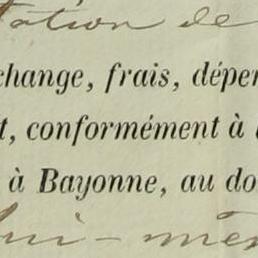 tation de
change, frais, dépen
t, conformément à
à Bayonne, au do
lui-mêm